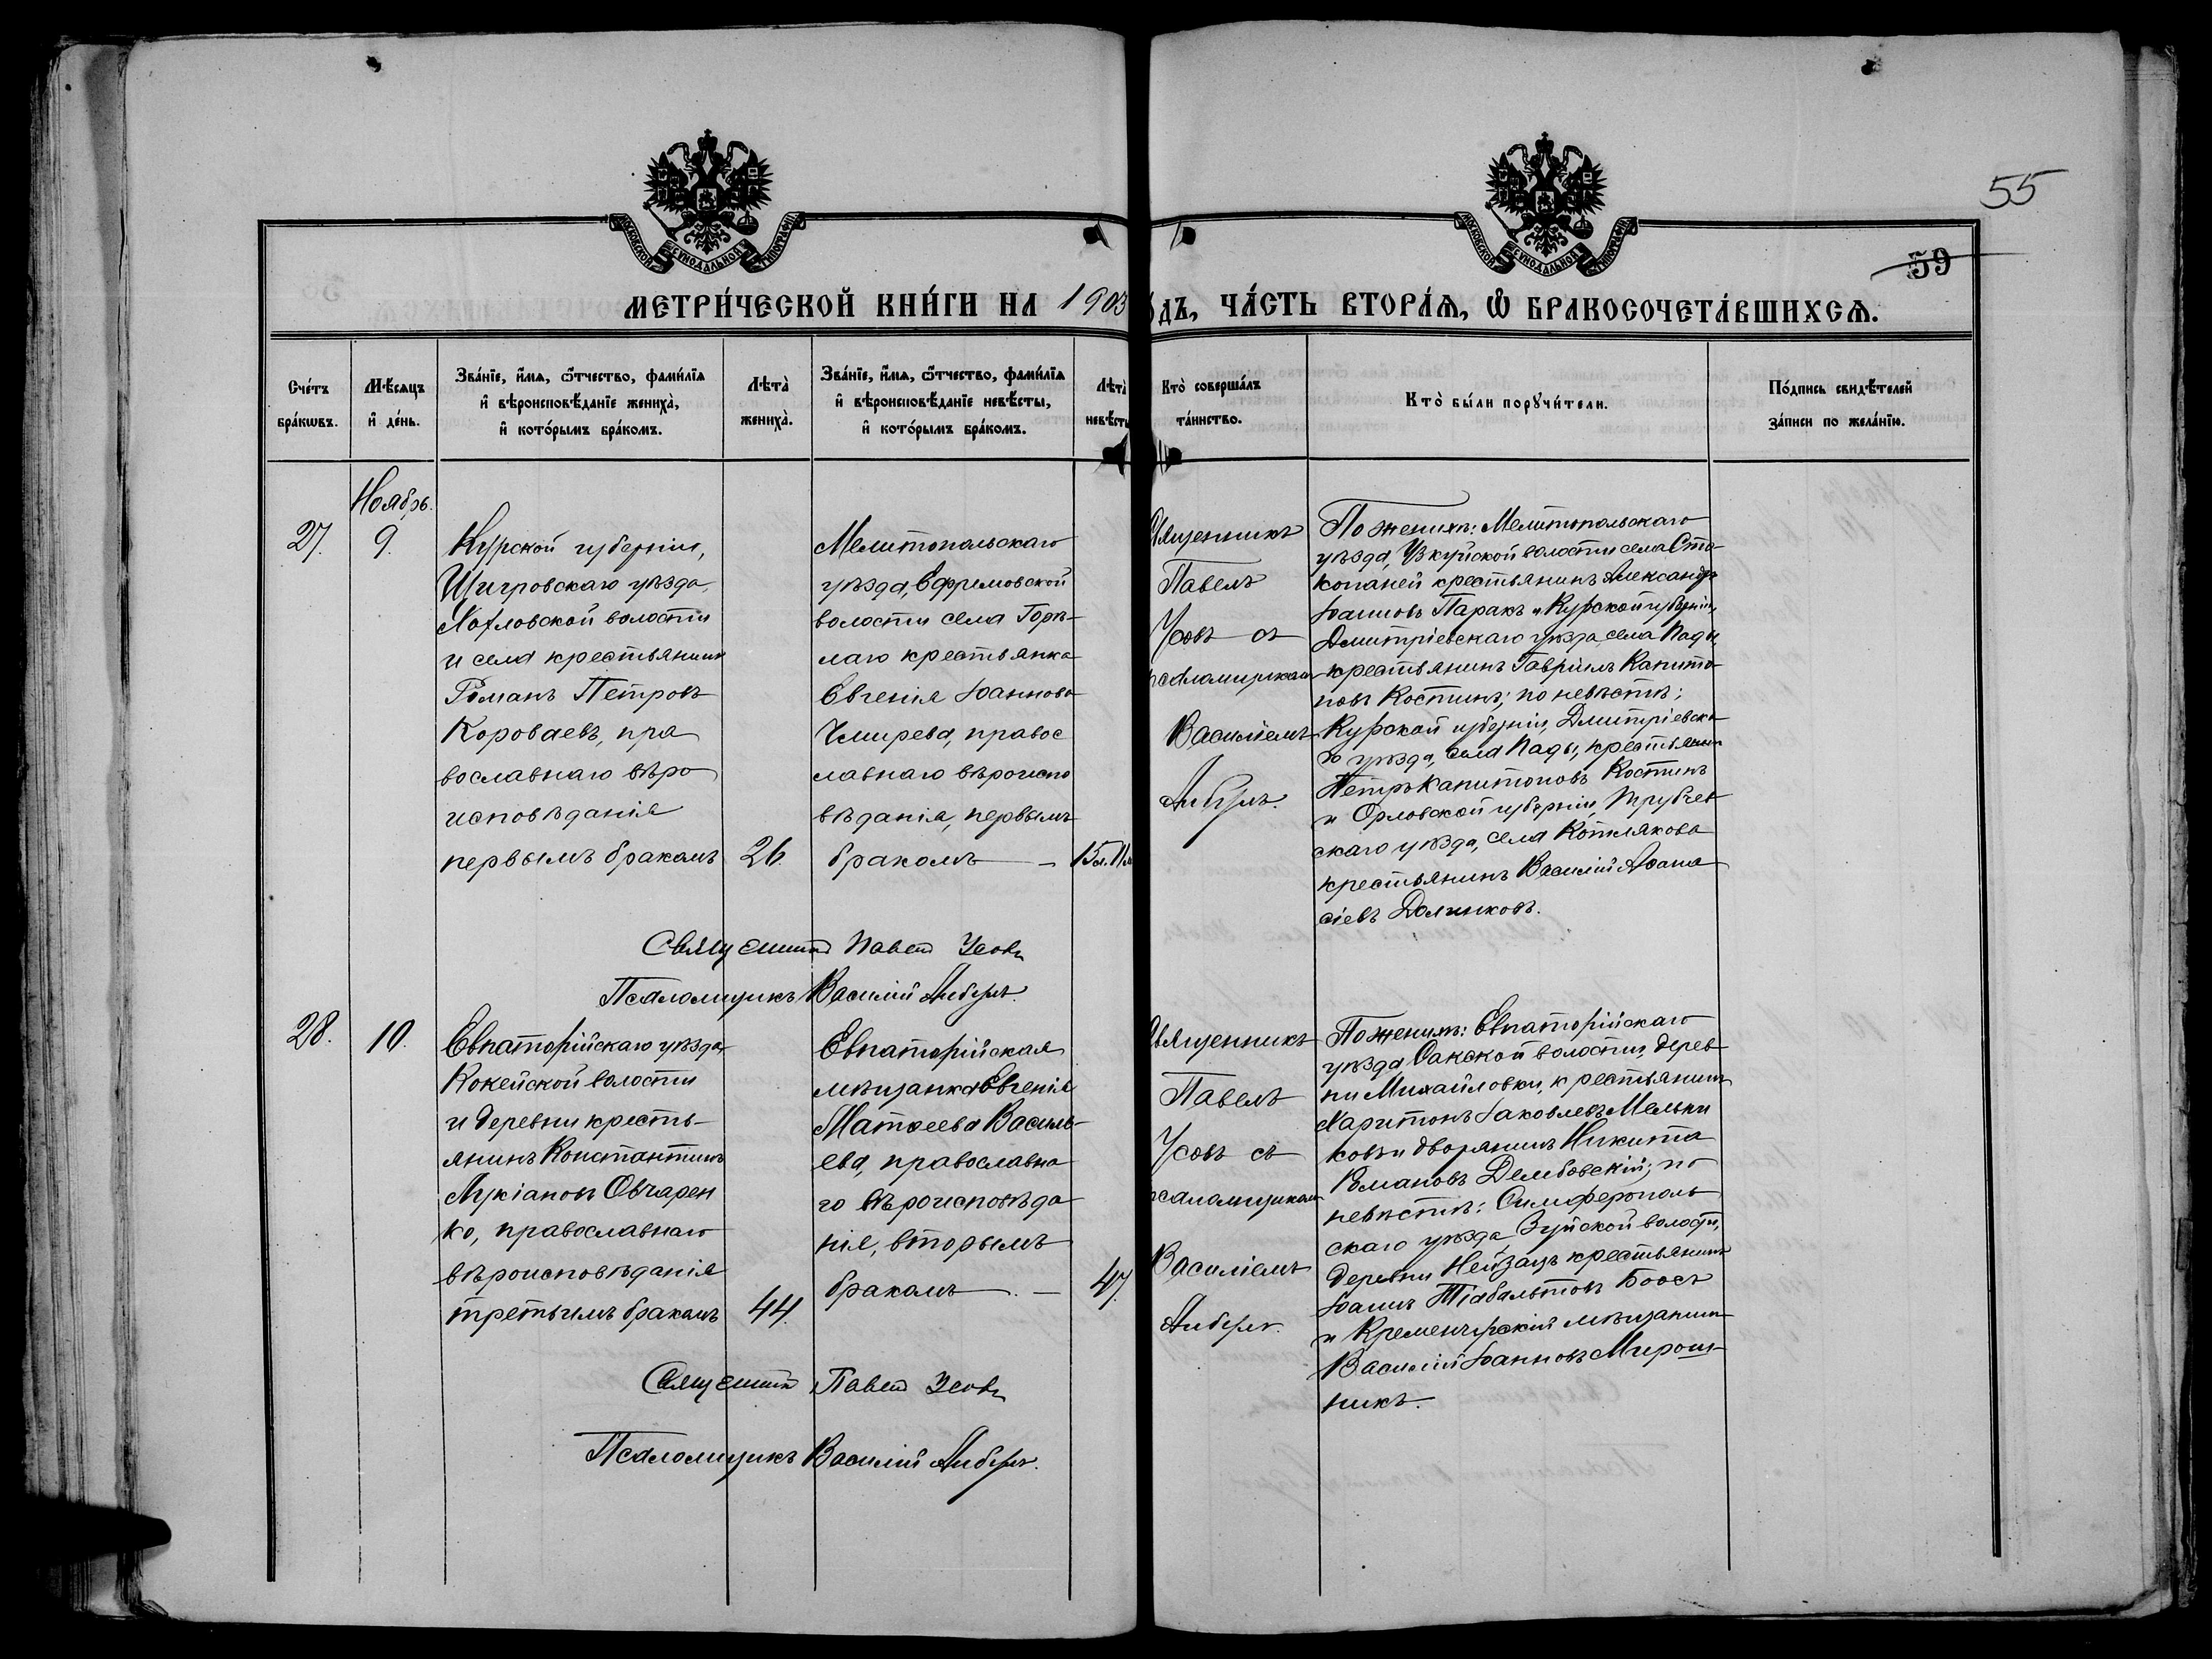 55
59
МОСКОВСКОЙ СѴНОДАЛЬНОЙ ТИПОГРАФІИ
МОСКОВСКОЙ СѴНОДАЛЬНОЙ ТИПОГРАФІИ
МЕТРИ́ЧЕСКОЙ КНИ́ГИ НА 1903
ДЪ, ЧА́СТЬ ВТОРА́Ѧ, Ѽ БРАКОСОЧЕТА́ВШИХСѦ.
Сче́тъ
бра́кѡвъ.
Мѣ́сѧцъ
и҆ де́нь.
Зва́нїе, и҆́мѧ, ѻ҆́тчество, фами́лїѧ
и҆ вѣроисповѣ́данїе жениха̀,
и҆ кото́рымъ бра́комъ.
Лѣта̀
жениха̀.
Зва́нїе, и҆́мѧ, ѻ҆́тчество, фами́лїѧ
и҆ вѣроисповѣ́данїе невѣ́сты,
и҆ кото́рымъ бра́комъ.
Лѣта̀
невѣ́сты
Кто̀ соверша́лъ
та́инство.
Кто̀ бы́ли порꙋчи́тели.
По́дпись свидѣ́телей
за́писи по жела́нїю.
Ноябрь.
27.
9.
Курской губерніи,
Щигровскаго уѣзда,
Хохловской волости
и села крестьянинъ
Романъ Петровъ
Короваевъ, пра
вославнаго вѣро
исповѣданія
первымъ бракомъ
26.
Мелитопольскаго
уѣзда, Ефремовской
волости села Горѣ-
лаго крестьянка
Евгенія Іоаннова
Чмирева, правос
лавнаго вѣроиспо
вѣданія, первымъ
бракомъ —
15л. 11м
Священникъ
Павелъ
Усовъ съ
псаломщикомъ
Василіемъ
По женихѣ: Мелитопольскаго
уѣзда, Узкуйской волости села Сто-
копаней крестьянинъ Александръ
Іоанновъ Паракъ и Курской губерніи,
Дмитріевскаго уѣзда, села Пады,
крестьянинъ Гавріилъ Капито-
новъ Костинъ; по невѣстѣ:
Курской губерніи, Дмитріевска-
го уѣзда, села Пады, крестьянинъ
Петръ Капитоновъ Костинъ
и Орловской губерніи, Трубчев
скаго уѣзда, села Котлякова
крестьянинъ Василій Аѳана
сіевъ Долчиковъ.
Священникъ Павелъ Усовъ
Псаломщикъ Василій
28.
10.
Евпаторійскаго уѣзда,
Кокейской волости
и деревни кресть-
янинъ Константинъ
Лукіановъ Овчарен
ко, православнаго
вѣроисповѣданія
третьимъ бракомъ
44.
Евпаторійская
мѣщанка Евгенія
Матѳеева Василь-
ева, православна
го вѣроисповѣда
нія, вторымъ
бракомъ. —
47.
Священникъ
Павелъ
Усовъ съ
псаломщикомъ
Василіемъ
По женихѣ: Евпаторійскаго
уѣзда, Сакской волости, дерев-
ни Михайловки, крестьянинъ
Харитонъ Іаковлевъ Мельни
ковъ и дворянинъ Никита
Романовъ Дембовскій; по
невѣстѣ: Симферополь
скаго уѣзда, Зуйской волости,
деревни Нейзацъ крестьянинъ
Іоаннъ Тіабальтовъ Боосъ
и Кременчугскій мѣщанинъ
Василій Іоанновъ Мирош-
никъ.
Священникъ Павелъ Усовъ
Псаломщикъ Василій